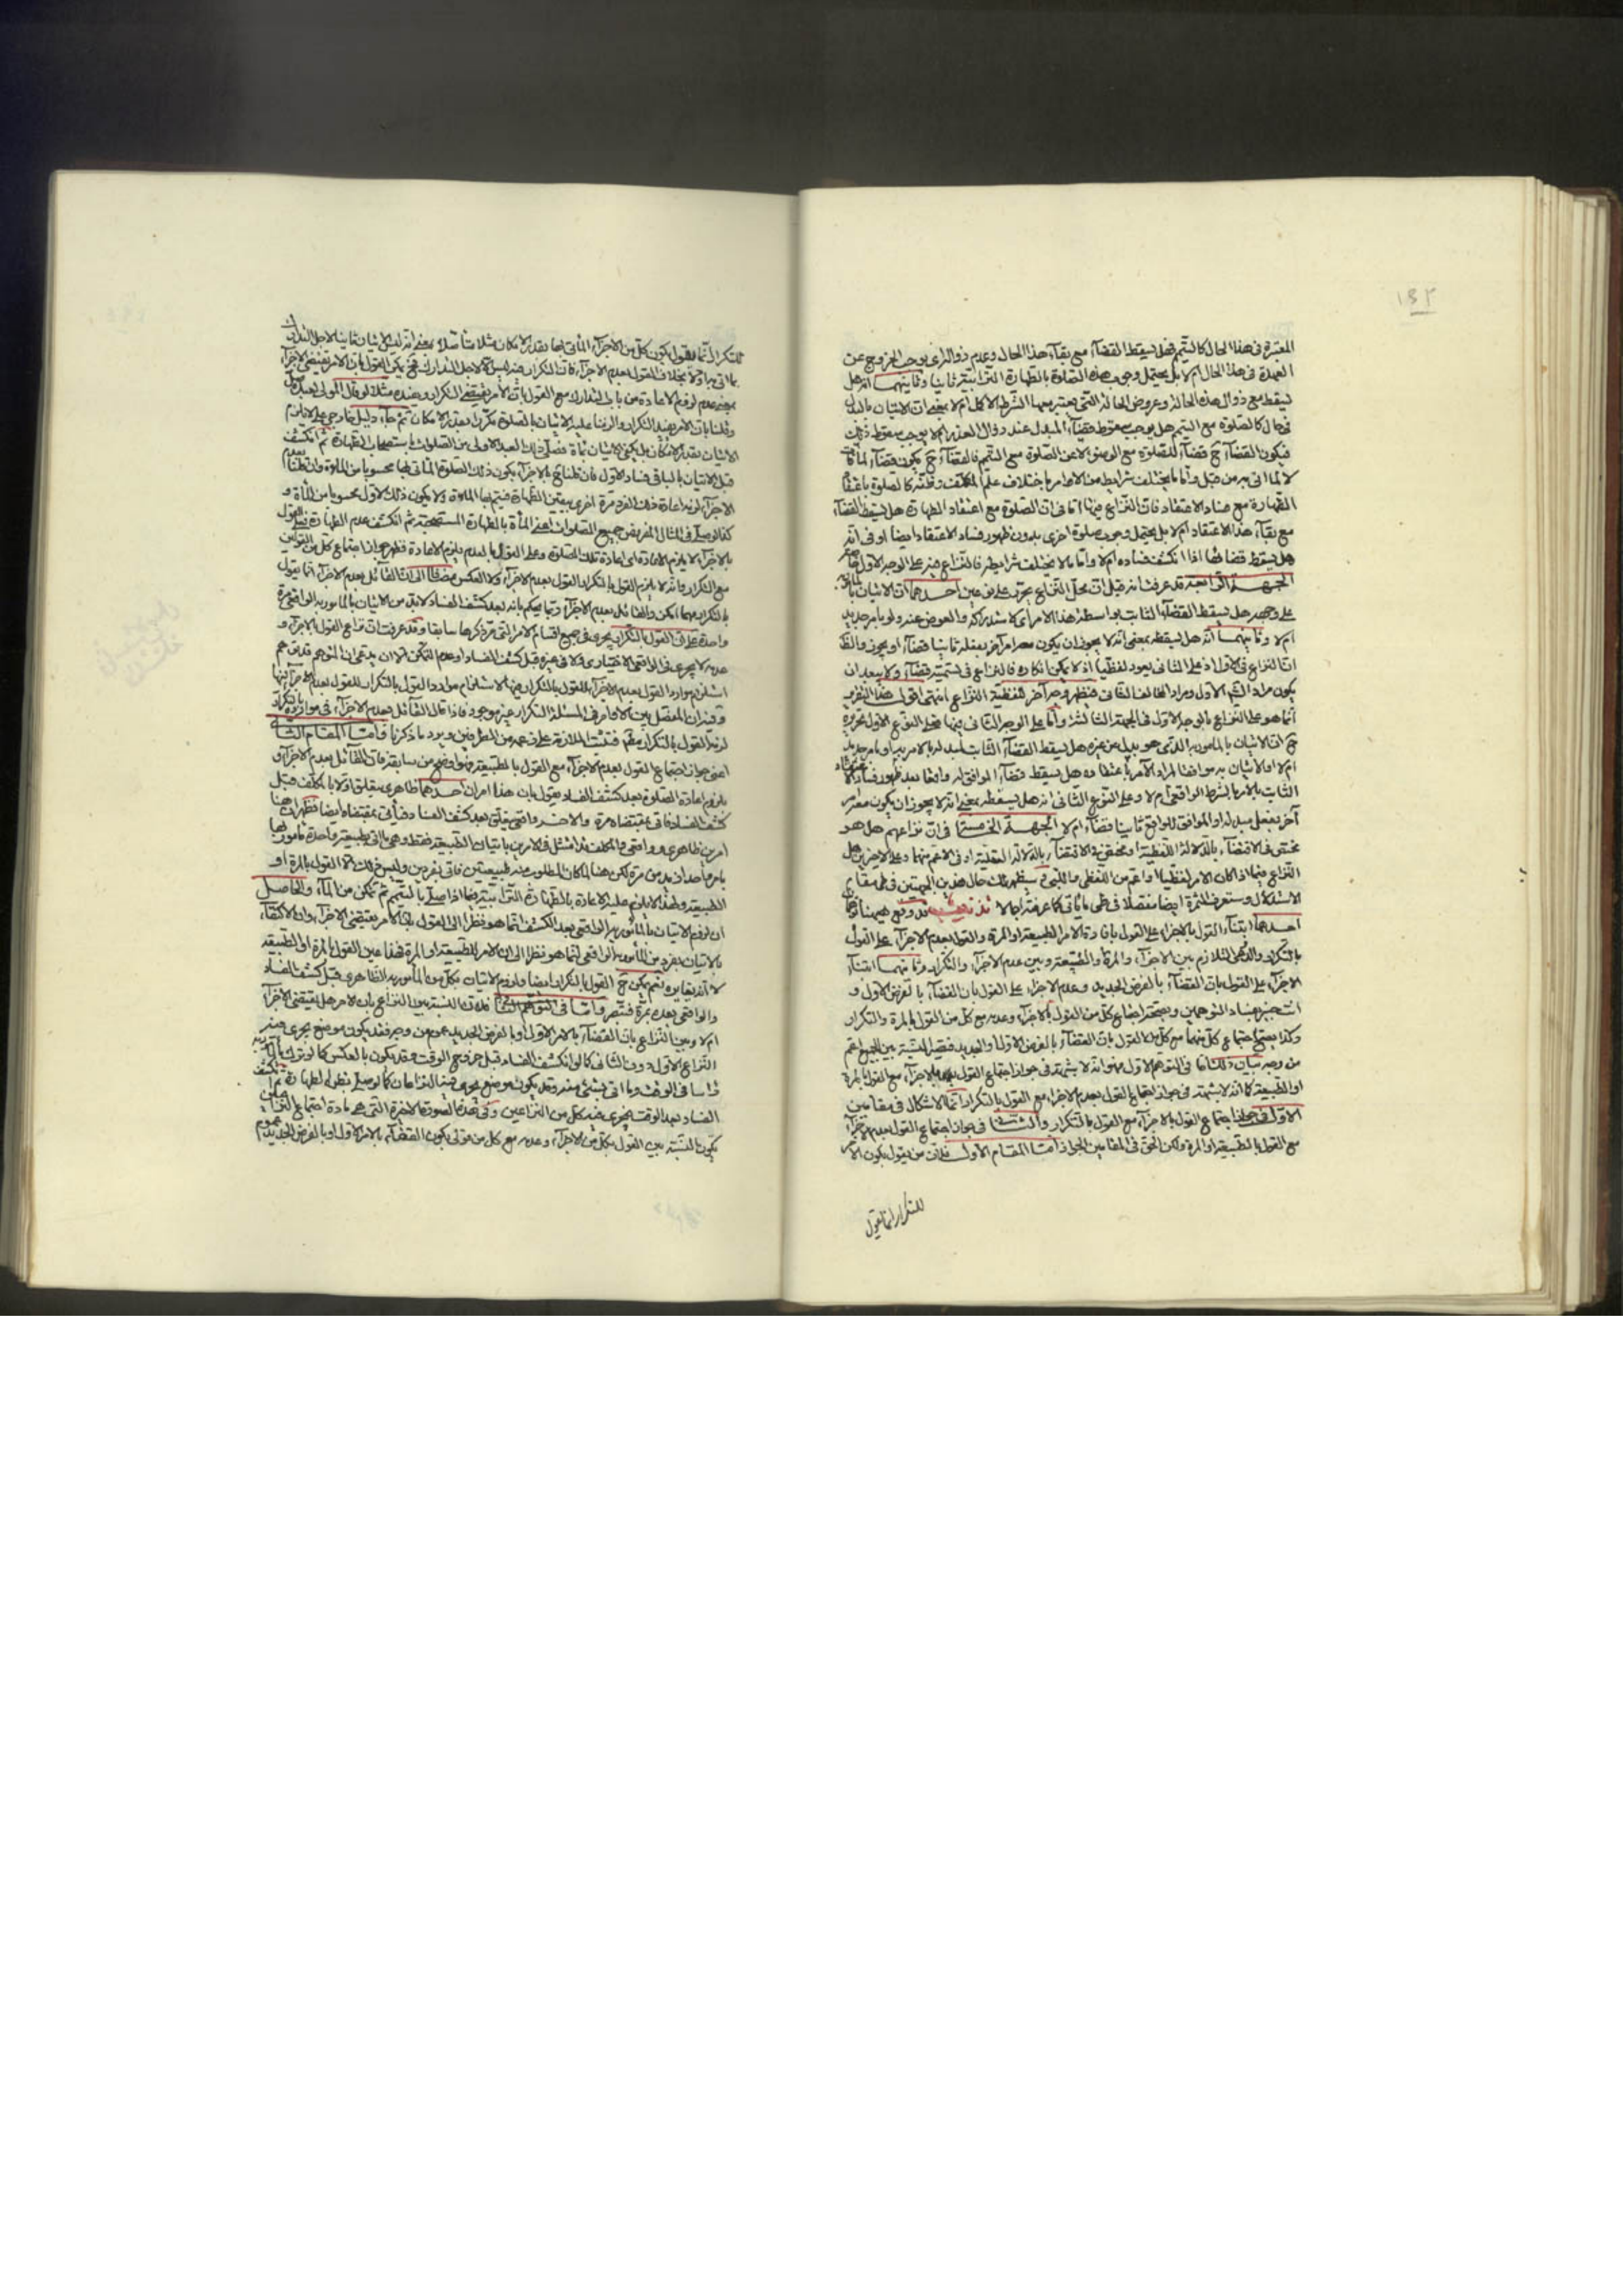 ١٣٢
المعتبرة فى هذا الحال كالتيمم فهل يسقط القضاء مع بقاء هذا الحال وعدم زوال الذى يوجب الخروج عن
العهدة فى هذا الحال ام لا بل يحتمل وجوب هذه الصلوة بالطهارة الترابية ثانيا وثانيهما انه هل
يسقط مع زوال هذه الحالة وعروض الحالة التى يعتبر معها الشرط الاكمل ام لا بمعنى ان الاتيان بالبدل
فى حال كالصلوة مع التيمم هل يوجب سقوط قضاء المبدل عند زوال العذر ام لا يوجب سقوط ذلك
فيكون القضاء ح قضاء للصلوة مع الوضوء لا عن الصلوة مع التيمم فالقضاء ح يكون قضاء لما فات
لا لما اتى به من قبل واما ما يختلف شرايط من الاوامر باختلاف علم المكلف وظنه كالصلوة باعتقاد
الطهارة مع فساد الاعتقاد فان النزاع فيها اما فى ان الصلوة مع اعتقاد الطهارة هل يسقط القضاء
مع بقاء هذا الاعتقاد ام لا بل يحتمل وجوب صلوة اخرى بدون ظهور فساد الاعتقاد ايضا او فى انه
هل يسقط قضاؤها اذا انكشف فساده ام لا واما ما لا يختلف شرايطه فالنزاع فيه على الوجه الاول
الجهة الرابعة قد عرفت انه قيل ان محل النزاع يحرر على نوعين احدهما ان الاتيان بالمأمور به
على وجهه هل يسقط القضاء الثابت بواسطة هذا الامر اى الاستدراك والعوض عنه ولو بامر جديد
ام لا وثانيهما انه هل يسقطه بمعنى انه لا يجوز ان يكون معه امر آخر بفعله ثانيا قضاء او يجوز والظ
ان النزاع فى الاول اذ على الثانى يعود لفظيا اذ لا يمكن انكاره فالنزاع فى تسميته قضاء ولا يبعد ان
يكون مراد القائل الاول ومراد المخالف الثانى فيظهر وجه آخر للفظية النزاع انتهى اقول هذا التقرير
انما هو على النزاع بالوجه الاول فى الجهة الثالثة واما على الوجه الثانى فيها فعلى النوع الاول تحريره
ح ان الاتيان بالمامور به الذى هو بدل عن غيره هل يسقط القضاء الثابت لمبدله بالامر به او بامر جديد
ام لا او الاتيان به موافقا لمراد الآمر باعتقاده هل يسقط قضاء الموافق له واقعا بعد ظهور فساد الاعتقاد
الثابت بالامر بالشرط الواقعى ام لا وعلى النوع الثانى انه هل يسقطه بمعنى انه لا يجوز ان يكون معه امر
آخر بفعل مبدله او الموافق للواقع ثانيا قضاء ام لا الجهة الخامسة فى ان نزاعهم هل هو
مختص فى الاقتضاء بالدلالة اللفظية او مختص فى الاقتضاء بالدلالة العقلية او فى الاعم منهما وعلى الاخيرين هل
النزاع فيما اذا كان الامر لفظيا او اعم من اللفظى واللبى وسيظهر لك حال هذين الجهتين فى طى مقام
الاستدلال وستعرف الثمرة ايضا مفصلا فى طى ما ياتى كما عرفته اجمالا تذنيب قد وقع هيهنا توهمان
احدهما ابتناء القول بالاجزاء على القول بافادة الامر الطبيعة او المرة والقول بعدم الاجزاء على القول
بالتكرار والتلازم بين الاجزاء والمرة والطبيعة وبين عدم الاجزاء والتكرار وثانيهما ابتناء
الاجزاء على القول بان القضاء بالفرض الجديد وعدم الاجزاء على القول بان القضاء بالفرض الاول و
انت خبير بفساد التوهمين وصحة اجتماع كل من القول بالاجزاء وعدمه مع كل من القول بالمرة والتكرار
وكذا يصح اجتماع كل منهما مع كل من القول بان القضاء بالفرض الاول او الجديد فيصير النسبة بين الجميع اعم
من وجه بيان ذلك اما فى التوهم الاول فهو انه لا شبهة فى جواز اجتماع القول بالاجزاء مع القول بالمرة
او الطبيعة كما انه لا شبهة فى جواز اجتماع القول بعدم الاجزاء مع القول بالتكرار انما الاشكال فى مقامين
الاول فى جواز اجتماع القول بالاجزاء مع القول بالتكرار والثانى فى جواز اجتماع القول بعدم الاجزاء
مع القول بالطبيعة او المرة ولكن الحق فى المقامين الجواز اما المقام الاول فلان من يقول بكون الامر
للتكرار انما يقول
للتكرار انما يقول بكون كل من الاجزاء الماتى بها بقدر الامكان مثلا متأصلا بمعنى انه ليس الاتيان ثانيا لاجل التدارك
بما اتى به اولا بخلاف القول بعدم الاجزاء فان التكرار فيه ليس الا لاجل التدارك فح يمكن القول بان الامر يقتضى الاجزاء
بمعنى عدم لزوم الاعادة من باب التدارك مع القول بان الامر يقتضى التكرار ويفيده مثلا لو قال المولى لعبده صل
وقلنا بان الامر يفيد التكرار والزمنا عليه الاتيان بالصلوة مكررا بقدر الامكان ثم جاء دليل خارجى على لا يلزم
الاتيان بقدر الامكان بل يكفى الاتيان بمأة فصلى ذلك العبد الاولى من الصلوات باستصحاب الطهارة ثم انكشف
قبل الاتيان بالباقى فساد الاول فان قلنا ح بالاجزاء يكون ذلك الصلوة الماتى بها محسوبا من المأة وان قلنا بعدم
الاجزاء لزمه اعادة ذلك الفرد مرة اخرى بيقين الطهارة فيتم بها المأة ولا يكون ذلك الاول محسوبا من المأة و
كذا لو صلى فى المثال المفروض جميع الصلوات اعنى المأة بالطهارة المستصحبة ثم انكشف عدم الطهارة فعلى القول
بالاجزاء لا يلزم الاعادة اى اعادة تلك الصلوة وعلى القول بالعدم يلزم الاعادة فظهر جواز اجتماع كل من القولين
مع التكرار فانه لا يلزم القول بالتكرار القول بعدم الاجزاء ولا العكس مضافا الى ان القائل بعدم الاجزاء انما يقول
بالتكرار مهما امكن والقائل بعدم الاجزاء ربما يحكم بانه بعد كشف الفساد لابد من الاتيان بالمامور به الواقعى مرة
واحدة على ان القول بالتكرار يجرى فى جميع اقسام الامر التى مر ذكرها سابقا وقد عرفت ان نزاع القول بالاجزاء و
عدمه لا يجرى فى الواقعى الاختيارى ولا فى غيره قبل كشف الفساد او عدم التمكن الا ان يدعى ان المتوهم قد توهم
استلزام موارد القول بعدم الاجزاء للقول بالتكرار فيها لا استلزام موارد القول بالتكرار للقول بعدم الاجزاء فيها
وفيه ان المفصل بين الاوامر فى المسئلة التكرار غير موجود فاذا قال القائل بعدم الاجزاء فى موارده بالتكرار
لزمه القول بالتكرار مطم فتثبت الملازمة على زعمه من الطرفين ويرد ما ذكرنا واما المقام الثانى
اعنى جواز اجتماع القول بعدم الاجزاء مع القول بالطبيعة فهو اوضح من سابقه فان القائل بعدم الاجزاء و
بلزوم اعادة الصلوة بعد كشف الفساد يقول بان هنا امران احدهما ظاهرى يتعلق اولا بالمكلف قبل
كشف الفساد فاتى بمقتضاه مرة والاخر واقعى يتعلق بعد كشف الفساد فيأتى بمقتضاه ايضا فظهر ان هنا
امرين ظاهرى وواقعى والمكلف قد امتثل فى الامرين باتيان الطبيعة فقط وهى ما اتى بطبيعة واحدة مأمور بها
بامر واحد ازيد من مرة لكن هنا لما كان المطلوب منه طبيعتين فاتى بفردين وليس ذلك الا القول بالمرة او
الطبيعة ولهذا لا يلزم عليه الاعادة بالطهارة الترابية فيما اذا صلى بالتيمم ثم تمكن من الماء والحاصل
ان لزوم الاتيان بالمأمور به الواقعى بعد الكشف انما هو نظرا الى القول بان الامر يقتضى الاجزاء وان الاكتفاء
بالاتيان بفرد من المأمور به الواقعى انما هو نظرا الى ان الامر للطبيعة او المرة فهذا عين القول بالمرة او الطبيعة
لا انه يغايره نعم يمكن ح القول بالتكرار ايضا ولزوم الاتيان بكل من المأمور به الظاهرى قبل كشف الفساد
والواقعى بعده بمرة فتبصر واما فى التوهم الثانى فلان النسبة بين النزاع بان الامر هل يقتضى الاجزاء
ام لا وبين النزاع بان القضاء بالامر الاول او بالفرض الجديد عموم من وجه فقد يكون موضع يجرى فيه
النزاع الاول دون الثانى كما لو انكشف الفساد قبل خروج الوقت وقد يكون بالعكس كما لو ترك المأمور به
راسا فى الوقت وما اتى بشئ منه وقد يكون موضع يجرى فيه النزاعان كما لو صلى بظن الطهارة ثم انكشف
الفساد بعد الوقت فيجرى فيه كل من النزاعين وفى هذه الصورة الاخيرة التى هى مادة اجتماع النزاعين
يكون النسبة بين القول بكل من الاجزاء وعدمه مع كل من قولى بكون القضاء بالامر الاول او بالفرض الجديد عموم